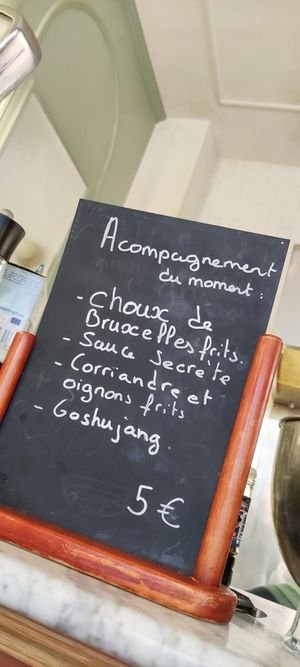 Acompagnement
du moment :
- Choux de
Bruxcelles frits.
- Sauce secrete
- Corriandre et
oignons frits
- Goshujang.
5 €